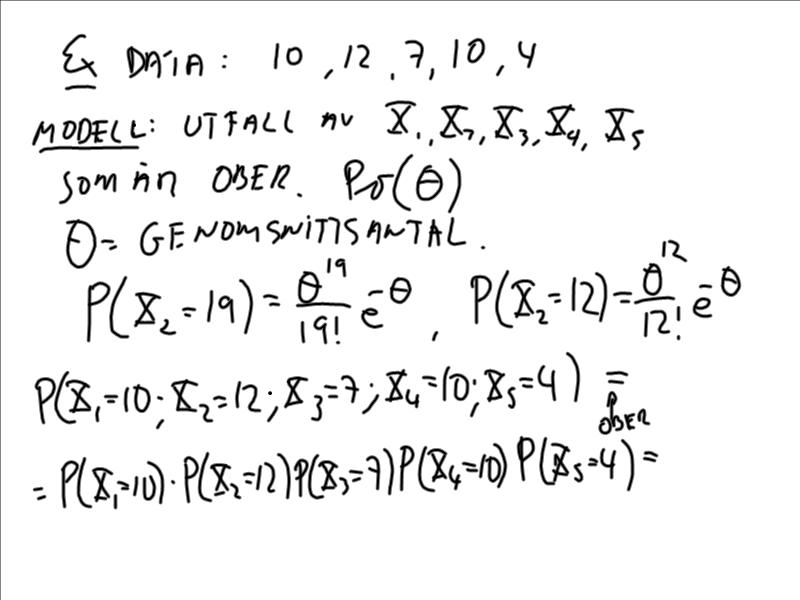 Ex DATA: 10, 12, 7, 10, 4
MODELL: UTFALL AV X₁, X₂, X₃, X₄, X₅
SOM ÄR OBER. Po(θ)
θ = GENOMSNITTSANTAL.
P(X₂=19) = θ¹⁹/19! e^-θ, P(X₂=12) = θ¹²/12! e^-θ
P(X₁=10; X₂=12; X₃=7; X₄=10; X₅=4) =
OBER
= P(X₁=10)·P(X₂=12)P(X₃=7)P(X₄=10)P(X₅=4) =